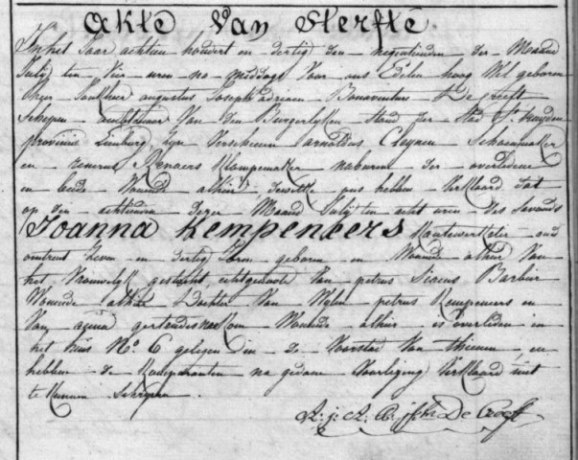 Akte Van Sterfte.
In het Jaar achtien hondert en dertig den negentienden der Maand
Julij ten Vier uren na middags Voor ons Edelen hoog Wel geboren
heer Jonkheer augustus Joseph adriaen Bonaventure De
Schepen Van den Burgerlyken Stand der Stad St Truyden
provincie Limburg, zyn Verschenen arnoldus Cleynen Schoenmaker
en Renaers Klompemaker naburen der overledene
en beide Woonende alhier, dewelke ons hebben Verklaard dat
op den achtienden dezer Maand Julij ten acht uren des avonds
Joanna Kempeneers oud
omtrent zeven en dertig Jaren geboren en Woonende alhier Van
het Vrouwelijk geslacht, echtgenoote Van petrus Barbier
Woonende alhier Dochter Van Wylen petrus Kempeneers en
Van gertrudis Woonende alhier is overleden in
het huis No 6 gelegen in de Voorstad Van Thienen, en
hebben de Komparanten na gedane Voorlezing Verklaard niet
te Kunnen Schryven.